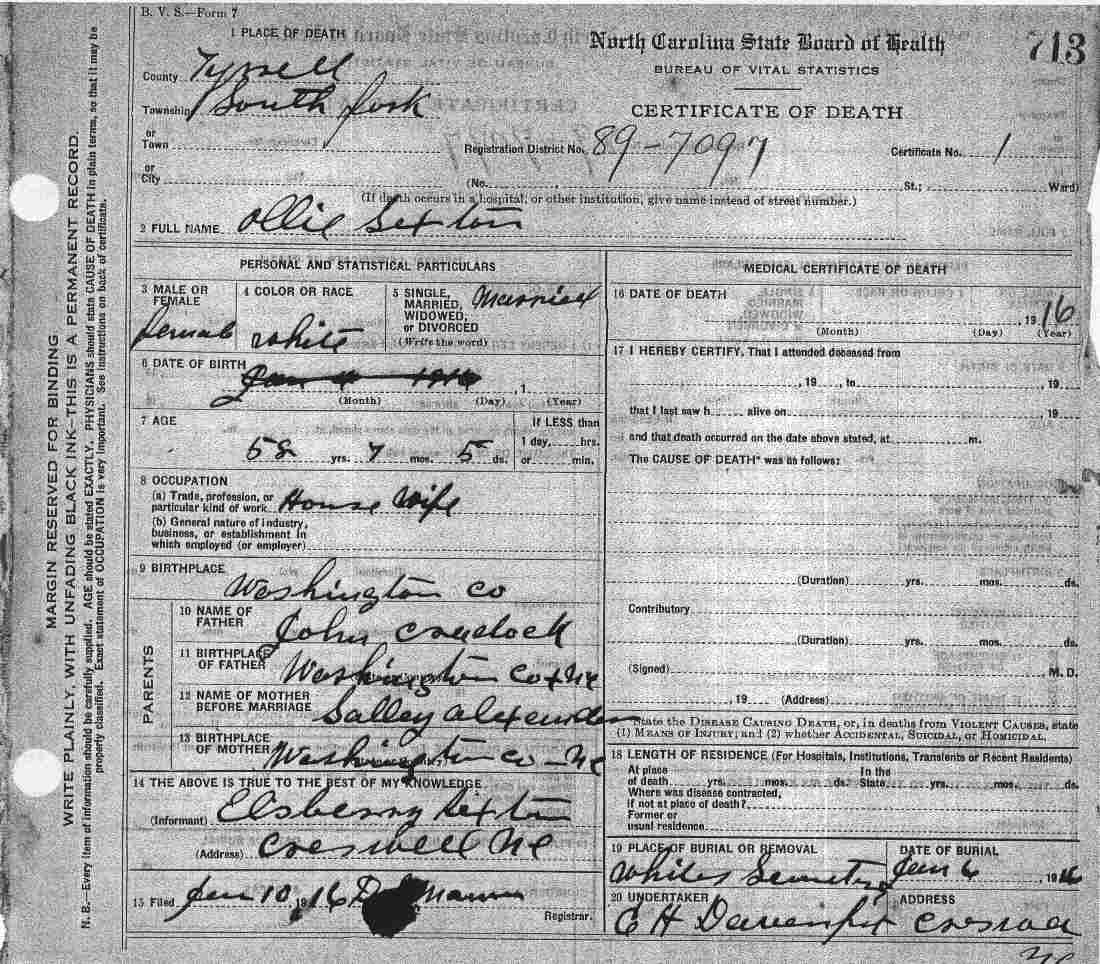 B. V. S.—Form 7
1 PLACE OF DEATH
North Carolina State Board of Health
713
BUREAU OF VITAL STATISTICS
CERTIFICATE OF DEATH
County Tyrrell
Township South fork
or Town
Registration District No. 89-7097
Certificate No. 1
or City
(No. St.; Ward)
(If death occurs in a hospital, or other institution, give name instead of street number.)
2 FULL NAME Ollie Sexton
PERSONAL AND STATISTICAL PARTICULARS
3 MALE OR FEMALE
Female
4 COLOR OR RACE
White
5 SINGLE, MARRIED, WIDOWED, or DIVORCED
(Write the word)
Married
6 DATE OF BIRTH
(Month) (Day) , 1 (Year)
7 AGE
58 yrs. 7 mos. 5 ds.
If LESS than
1 day, hrs.
or min.
8 OCCUPATION
(a) Trade, profession, or
particular kind of work House Wife
(b) General nature of industry,
business, or establishment in
which employed (or employer)
9 BIRTHPLACE
Washington Co
PARENTS
10 NAME OF FATHER
John Cradock
11 BIRTHPLACE OF FATHER
Washington Co NC
12 NAME OF MOTHER BEFORE MARRIAGE
Salley Alexander
13 BIRTHPLACE OF MOTHER
Washington Co - NC
14 THE ABOVE IS TRUE TO THE BEST OF MY KNOWLEDGE
(Informant) Elsberry Sexton
(Address) Creswell NC
15 Filed Jan 10, 1916
Registrar.
MEDICAL CERTIFICATE OF DEATH
16 DATE OF DEATH
, 1916
(Month) (Day) (Year)
17 I HEREBY CERTIFY, That I attended deceased from
, 19 , to , 19
that I last saw h alive on , 19
and that death occurred on the date above stated, at m.
The CAUSE OF DEATH* was as follows:
(Duration) yrs. mos. ds.
Contributory
(Duration) yrs. mos. ds.
(Signed) M. D.
, 19 (Address)
State the DISEASE CAUSING DEATH, or, in deaths from VIOLENT CAUSES, state
(1) MEANS OF INJURY; and (2) whether ACCIDENTAL, SUICIDAL, or HOMICIDAL.
18 LENGTH OF RESIDENCE (For Hospitals, Institutions, Transients or Recent Residents)
At place of death yrs. mos. ds. In the State yrs. mos. ds.
Where was disease contracted,
if not at place of death?
Former or
usual residence
19 PLACE OF BURIAL OR REMOVAL
Whites Semetry
DATE OF BURIAL
Jan 6 1916
20 UNDERTAKER
E H Davenport
ADDRESS
NC
MARGIN RESERVED FOR BINDING
WRITE PLAINLY, WITH UNFADING BLACK INK—THIS IS A PERMANENT RECORD.
N. B.—Every item of information should be carefully supplied. AGE should be stated EXACTLY. PHYSICIANS should state CAUSE OF DEATH in plain terms, so that it may be
properly classified. Exact statement of OCCUPATION is very important. See instructions on back of certificate.